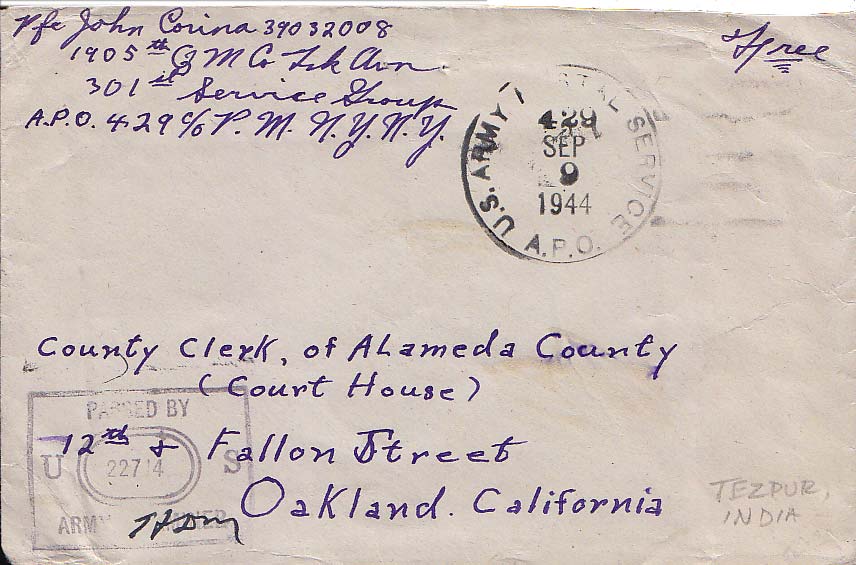 Pfc John Corina 39032008
1905th Q M Co Trk Avn.
301st Service Group
A.P.O. 429 c/o P. M. N.Y. N.Y.
Free
U.S. ARMY POSTAL SERVICE
429
SEP
9
1944
A.P.O.
County Clerk, of Alameda County
(Court House)
12th & Fallon Street
Oakland. California
PASSED BY
U 22714 S
ARMY EXAMINER
TEZPUR,
INDIA